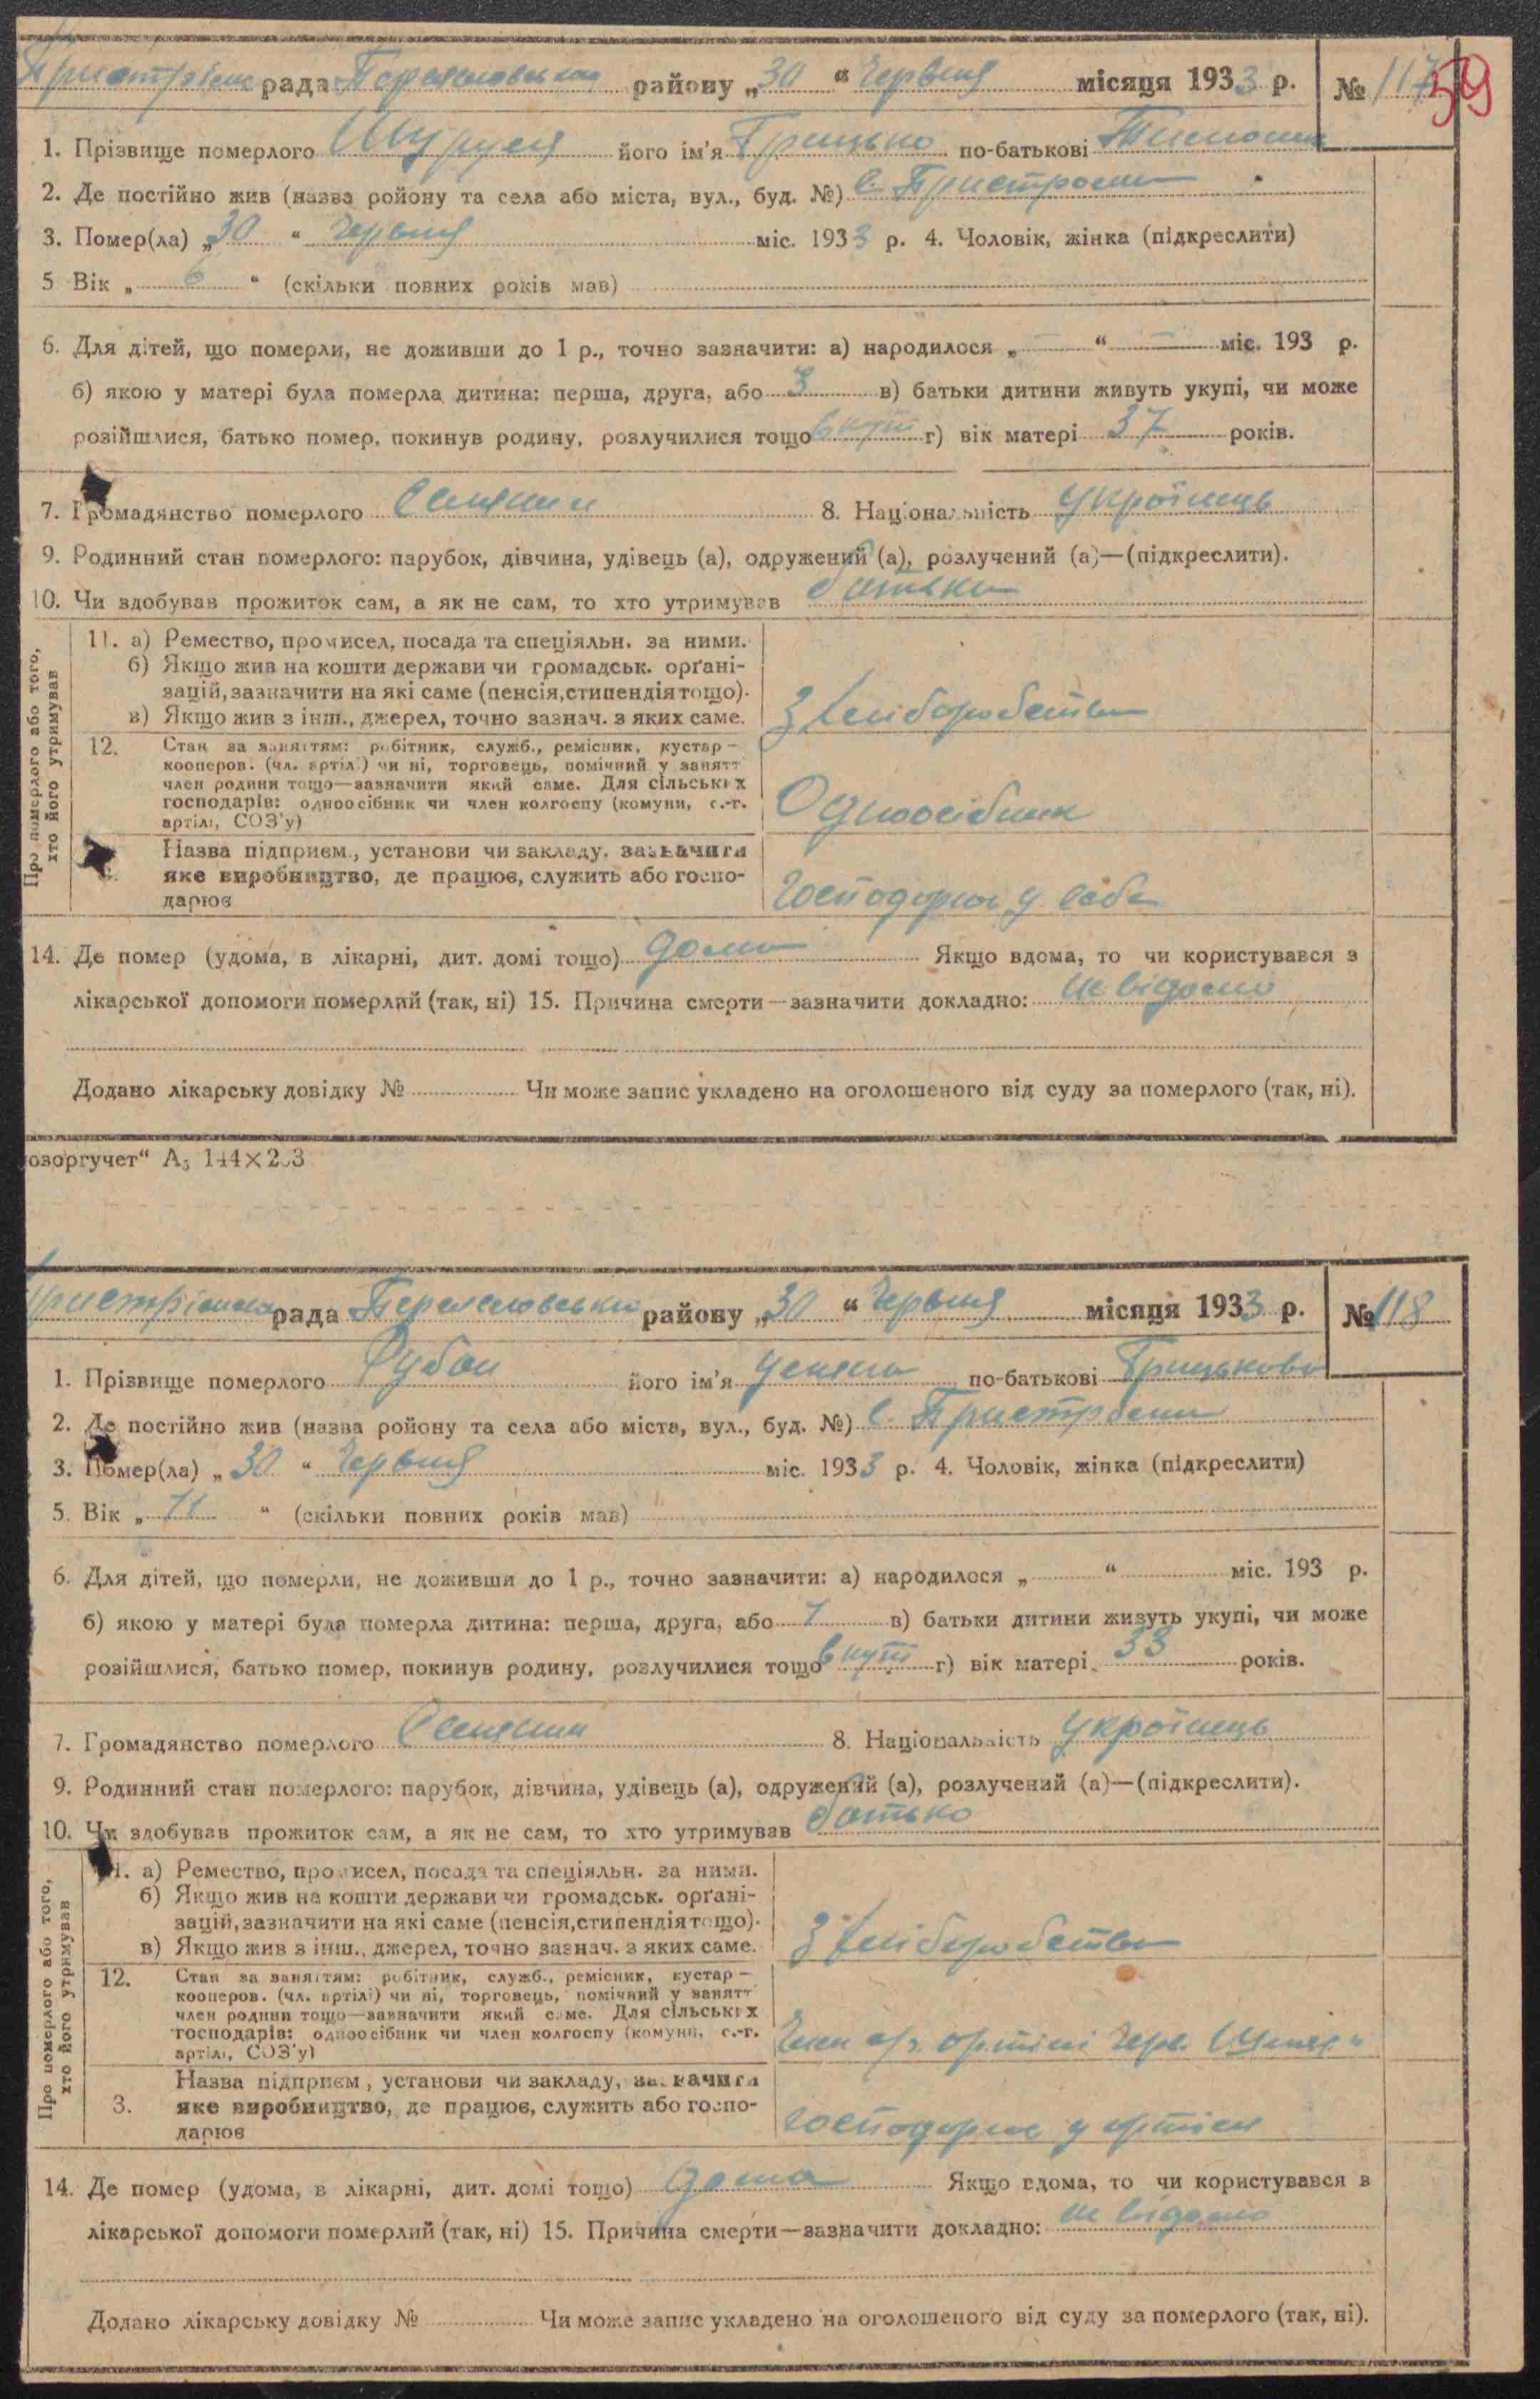 рада Переяславського району „30“ Червня місяця 1933 р. № 117 59
1. Прізвище померлого його ім'я Грицько по-батькові
2. Де постійно жив (назва ройону та села або міста, вул., буд. №) с. Пристроми
3. Помер(ла) „30“ Червня міс. 1933 р. 4. Чоловік, жінка (підкреслити)
5 Вік „6“ (скільки повних років мав)
6. Для дітей, що померли, не доживши до 1 р., точно зазначити: а) народилося „—“ — міс. 193 р.
б) якою у матері була померла дитина: перша, друга, або 3 в) батьки дитини живуть укупі, чи може
розійшлися, батько помер, покинув родину, розлучилися тощо вкупі г) вік матері 37 років.
7. Громадянство померлого Селянин 8. Національність українець
9. Родинний стан померлого: парубок, дівчина, удівець (а), одружений (а), розлучений (а)—(підкреслити).
10. Чи здобував прожиток сам, а як не сам, то хто утримував батьки
Про померлого або того, хто його утримував
11. а) Ремество, промисел, посада та спеціяльн. за ними.
б) Якщо жив на кошти держави чи громадськ. орґані-
зацій, зазначити на які саме (пенсія, стипендія тощо).
в) Якщо жив з інш., джерел, точно зазнач. з яких саме. З хліборобства
12. Стан за заняттям: робітник, служб., ремісник, кустар—
кооперов. (чл. артілі) чи ні, торговець, помічний у занятт
член родини тощо—зазначити який саме. Для сільських
господарів: одноосібник чи член колгоспу (комуни, с.-г.
артілі, СОЗ'у) Одноосібник
Назва підприєм., установи чи закладу, зазначити
яке виробництво, де працює, служить або госпо-
дарює господарює у себе
14. Де помер (удома, в лікарні, дит. домі тощо) дома Якщо вдома, то чи користувався з
лікарської допомоги померлий (так, ні) 15. Причина смерти—зазначити докладно: не відомо
Додано лікарську довідку № Чи може запис укладено на оголошеного від суду за померлого (так, ні).
озоргучет“ А₅ 144×203
рада Переяславського району „30“ Червня місяця 1933 р. № 118
1. Прізвище померлого Рубан його ім'я по-батькові Грицькова
2. Де постійно жив (назва ройону та села або міста, вул., буд. №) с. Пристроми
3. Помер(ла) „30“ Червня міс. 1933 р. 4. Чоловік, жінка (підкреслити)
5. Вік „11“ (скільки повних років мав)
6. Для дітей, що померли, не доживши до 1 р., точно зазначити: а) народилося „ “ міс. 193 р.
б) якою у матері була померла дитина: перша, друга, або 1 в) батьки дитини живуть укупі, чи може
розійшлися, батько помер, покинув родину, розлучилися тощо вкупі г) вік матері 33 років.
7. Громадянство померлого Селянин 8. Національність українець
9. Родинний стан померлого: парубок, дівчина, удівець (а), одружений (а), розлучений (а)—(підкреслити).
10. Чи здобував прожиток сам, а як не сам, то хто утримував батько
Про померлого або того, хто його утримував
11. а) Ремество, промисел, посада та спеціяльн. за ними.
б) Якщо жив на кошти держави чи громадськ. орґані-
зацій, зазначити на які саме (пенсія, стипендія тощо).
в) Якщо жив з інш., джерел, точно зазнач. з яких саме. З хліборобства
12. Стан за заняттям: робітник, служб., ремісник, кустар—
кооперов. (чл. артілі) чи ні, торговець, помічний у занятт
член родини тощо—зазначити який саме. Для сільських
господарів: одноосібник чи член колгоспу (комуни, с.-г.
артілі, СОЗ'у) Член артілі Черв.
Назва підприєм, установи чи закладу, зазначити
3. яке виробництво, де працює, служить або госпо-
дарює господарює у артілі
14. Де помер (удома, в лікарні, дит. домі тощо) дома Якщо вдома, то чи користувався в
лікарської допомоги померлий (так, ні) 15. Причина смерти—зазначити докладно: не відомо
Додано лікарську довідку № Чи може запис укладено на оголошеного від суду за померлого (так, ні).